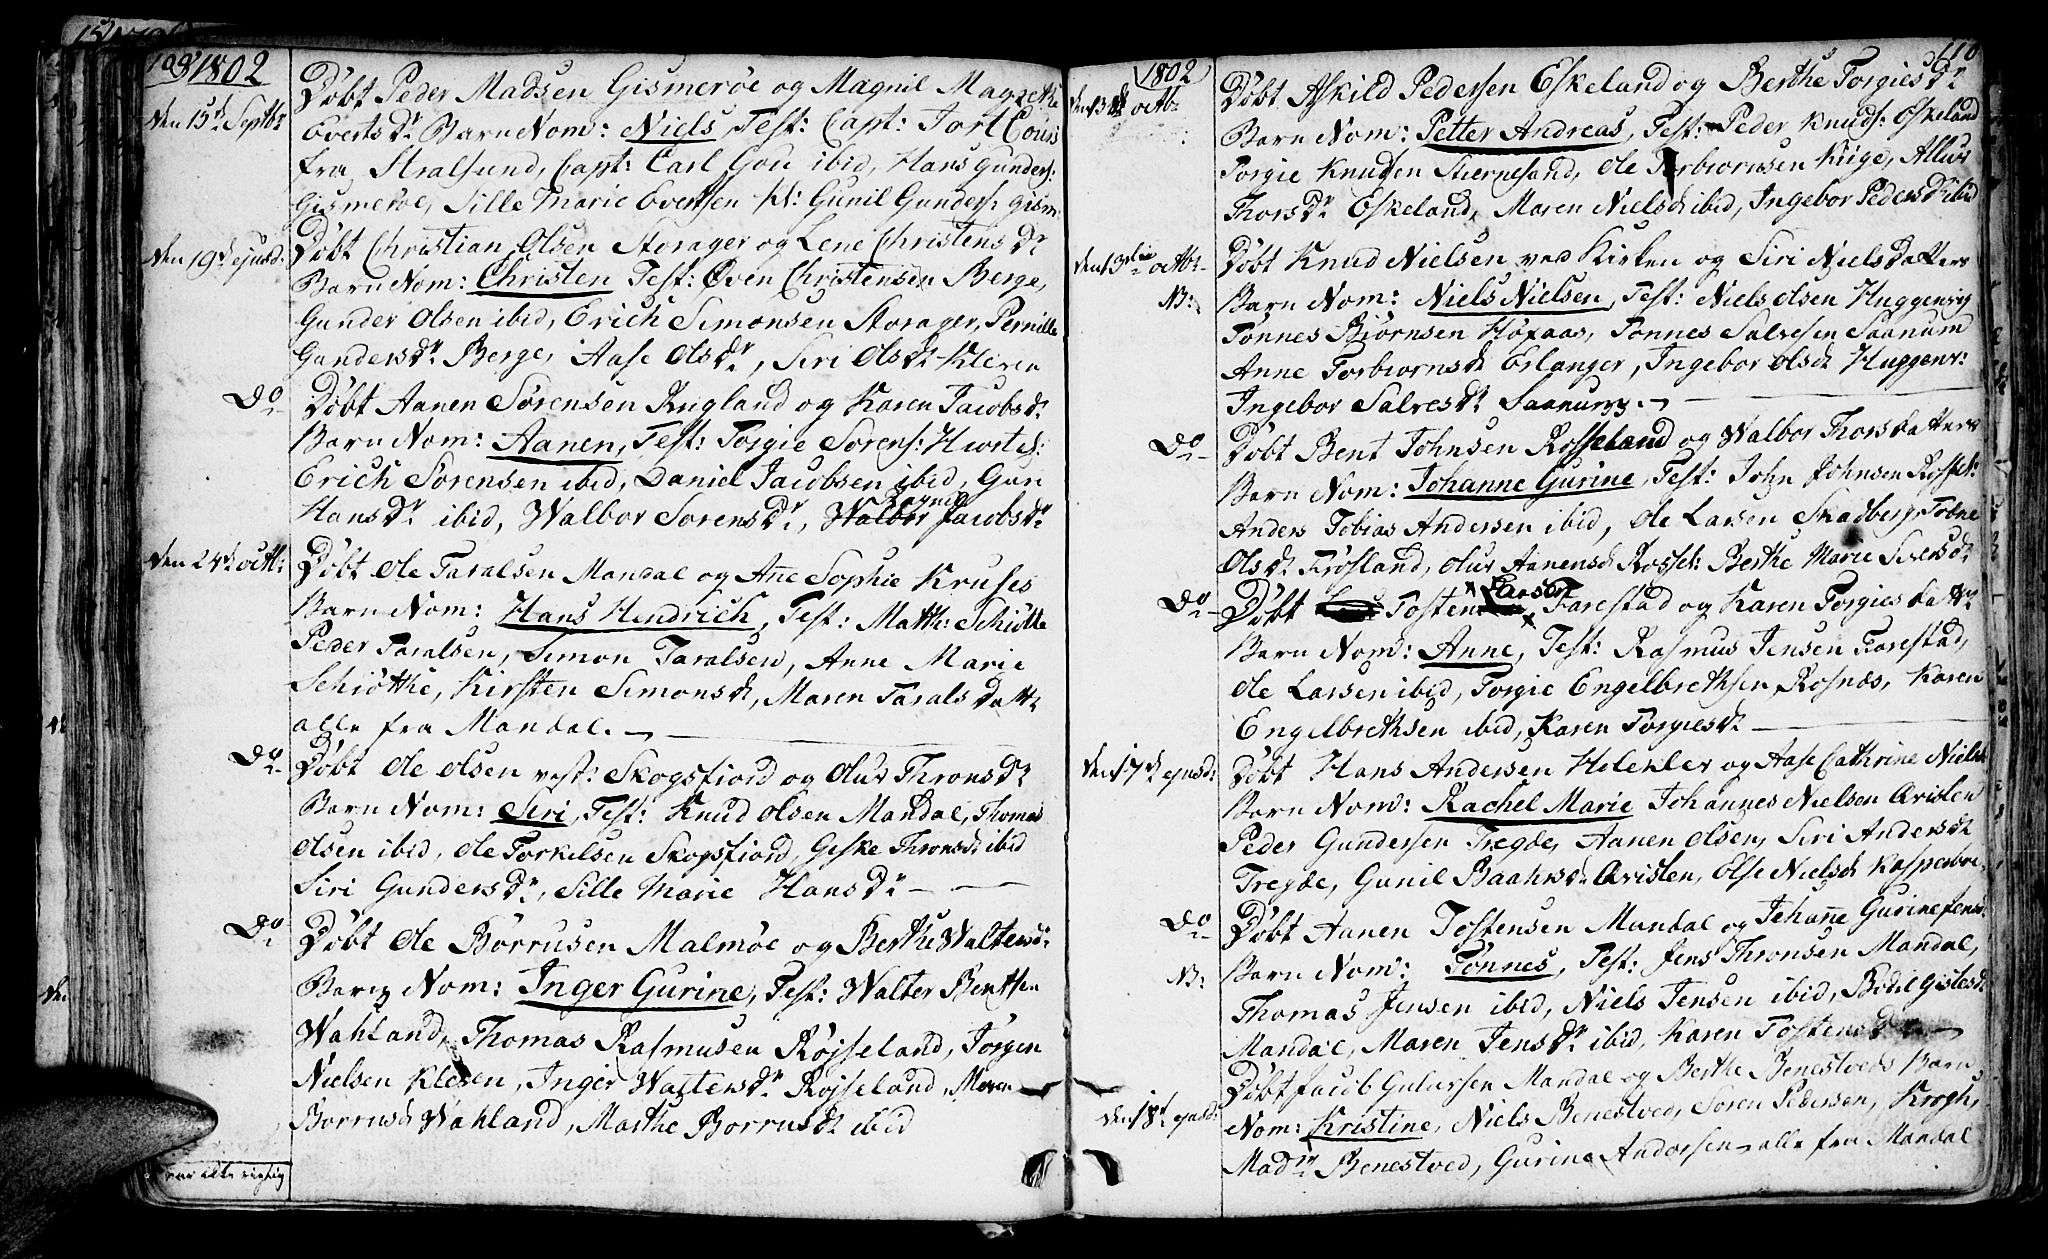 109 1802
den 15de Septbr
Døbt Peder Madsen Gismerøe og Magnil Magrethe
Evertsdr Barn Nom: Niels, Test: Capt: Jort Couis
fra Stralsund, Capt: Carl Gou ibid, Hans Gunders:
Gismerøe, Sille Marie Evertsen Kl: Gunil Gunders: Gism:
den 19de ejusd:
Døbt Christian Olsen Storager og Lene Christensdr
Barn Nom: Christen Test: Øven Christensen Berge,
Gunder Olsen ibid, Erich Simonsen Storager, Pernille
Gundersdr Berge, Aase Olsdr, Siri Olsdr Kleven
Do
Døbt Aanen Sørensen Rugland og Karen Jacobsdr
Barn Nom: Aanen, Test: Torgie Sørens: Hiortes:
Erich Sørensen ibid, Daniel Jacobsen ibid, Gun
Hansdr ibid, Walbor Sorensdr, Walbor Jacobsdr
den 24de octbr
Døbt Ole Taralsen Mandal og Añe Sophie Kruses
Barn Nom: Hans Hendrich, Test: Matth: Schiötte
Peder Taralsen, Simon Taralsen, Anne Marie
Schiötthe, Kirsten Simonsdr, Maren Tarals datter
alle fra Mandal.
Do
Døbt Ole Olsen vest: Skogsfiord og Olur Thronsdr
Barn Nom: Siri, Test: Knud Olsen Mandal, Thomas
Olsen ibid, Ole Torkilsen Skogsfiord, Geske Thronsdr ibid
Siri Gundersdr, Sille Marie Hansdr
Do
Døbt Ole Børrusen Malmøe og Berthe Waltersdr
Barn Nom: Inger Gurine, Test: Walter Berthen
Wahland, Thomas Rasmusen Røjseland, Jörgen
Nielsen Kleven, Inger Waltersdr Røjseland, Maren
Borrusdr Wahland, Marthe Borrusdr ibid
var ikke rigtig
1802 110
den 3de octbr
Døbt Askild Pedersen Eskeland og Berthe Torgiesdr
Barn Nom: Petter Andreas, Test: Peder Knuds: Eskeland
Torgie Knudsen Stiernesand, Ole Torbiornsen Kiige, Allur
Thorsdr Eskeland, Maren Nielsdr ibid, Ingebor Pedersdr ibid
den 13die octbr
NB:
Døbt Knud Nielsen ved Kirken og Siri Niels datter
Barn Nom: Niels Nielsen, Test: Niels Olsen Huggenvig
Tonnes Biørnsen Höjaas, Tonnes Salvesen Saanum
Anne Torbiornsdr Eslanger, Ingebor Olsdr Huggenv:
Ingebor Salvesdr Saanum.
Do
Døbt Bent Johnsen Rosseland og Walbor Thorsdatter
Barn Nom: Johanne Gurine, Test: John Johnsen Rossel:
Anders Tobias Andersen ibid, Ole Larsen Skadberg, Tobne
Olsdr Frøsland, Olur Aanensdr Rossel: Berthe Marie Sversdr
Do
Døbt Tosten Larsen Farestad og Karen Torgies datter
Barn Nom: Anne, Test: Rasmus Jensen Farestad,
Ole Larsen ibid, Torgie Engelbrethsen Rosnæs, Karen
Engelbrethsen ibid, Karen Torgiesdr
den 17de ejusd:
Døbt Hans Andersen Holckler og Aase Cathrine Nielsdr
Barn Nom: Rachel Marie Johannes Nielsen Avisten
Peder Gundersen Tregde, Aanen Olsen, Siri Andersdr
Tregde, Gunil Baahrsdr Avisten, Else Nielsdr Kosperboe
Do
NB:
Døbt Aanen Tostensen Mandal og Johañe Gurine Jensdr:
Barn Nom: Tönnes, Test: Jens Thronsen Mandal,
Thomas Jensen ibid, Niels Jensen ibid, Bodil Gislesdr
Mandal, Maren Jensdr ibid, Karen Tostensdr
den 18de ejusd:
Døbt Jacob Gulusen Mandal og Berthe Benestveds Barn
Nom: Kristine, Niels Benestved, Soren Pedersen, Krogh,
Madme Benestved, Gurine Andersen alle fra Mandal